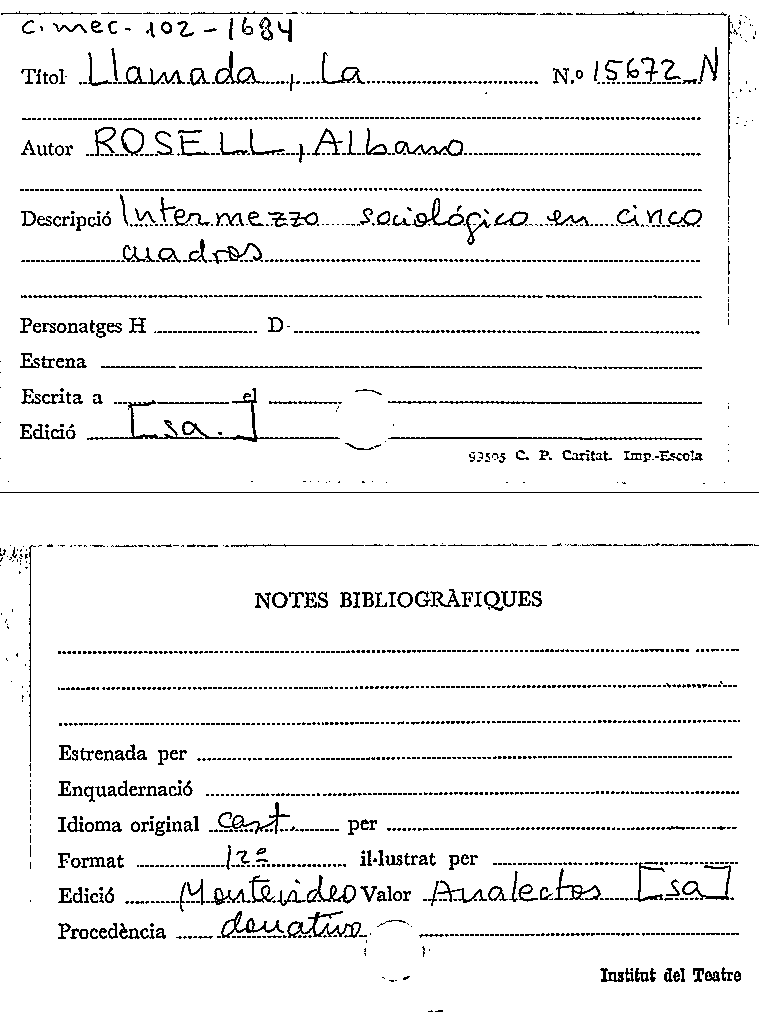 C. mec. 102 - 1684
Títol Llamada, La N.º 15672 N
Autor ROSELL, Albano
Descripció Intermezzo sociológico en cinco
cuadros
Personatges H D
Estrena
Escrita a el
Edició [sa.]
93505 C. P. Caritat. Imp.-Escola
NOTES BIBLIOGRÀFIQUES
Estrenada per
Enquadernació
Idioma original cast. per
Format 12º il·lustrat per
Edició Montevideo Valor Analectos [sa]
Procedència donativo
Institut del Teatre